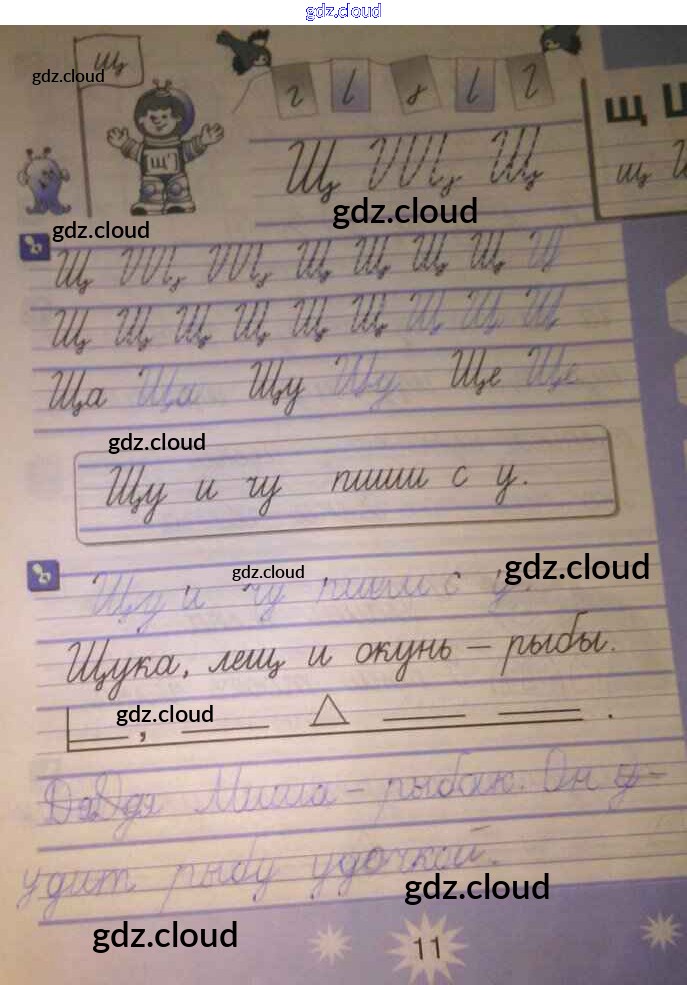 gdz.cloud
щ
gdz.cloud
Щ Щ Щ
щ
gdz.cloud
gdz.cloud
Щ Щ Щ Щ Щ Щ Щ Щ
Щ Щ Щ Щ Щ Щ Щ Щ Щ
Ща Ща Щу Щу Ще Ще
gdz.cloud
Щу и чу пиши с у.
gdz.cloud
gdz.cloud
Щу и чу пиши с у.
Щука, лещ и окунь – рыбы.
gdz.cloud
Дядя Миша – рыбак. Он у-
удит рыбу удочкой.
gdz.cloud
gdz.cloud
11